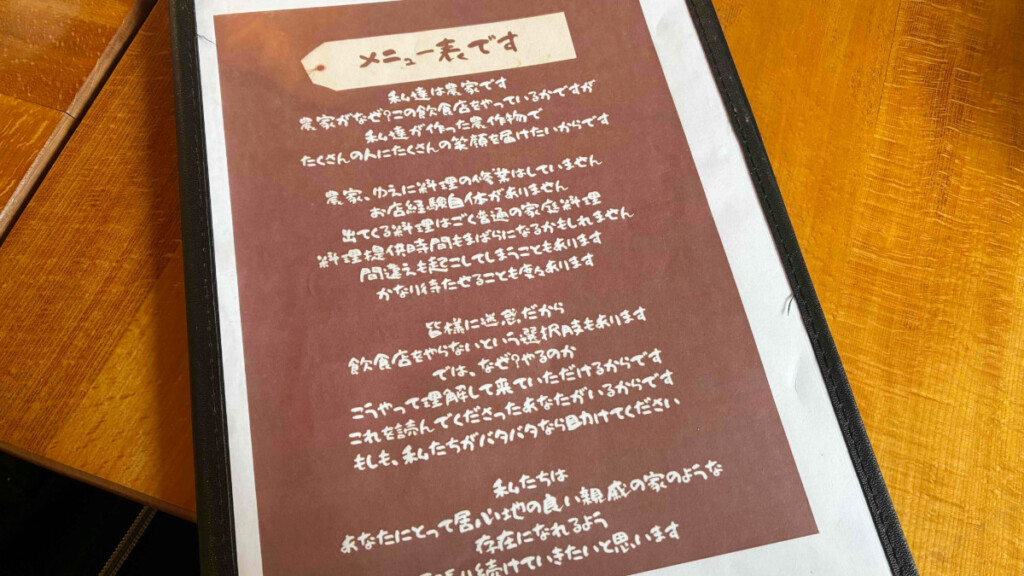 メニュー表です
私達は農家です
農家がなぜ?この飲食店をやっているかですが
私達が作った農作物で
たくさんの人にたくさんの笑顔を届けたいからです
農家、ゆえに料理の修業はしていません
お店経験自体がありません
出てくる料理はごく普通の家庭料理
料理提供時間もまばらになるかもしれません
間違えも起こしてしまうこともあります
かなり待たせることも多々あります
皆様に迷惑だから
飲食店をやらないという選択肢もあります
では、なぜ?やるのか
こうやって理解して来ていただけるからです
これを読んでくださったあなたがいるからです
もしも、私たちがバタバタなら助けてください
私たちは
あなたにとって居心地の良い親戚の家のような
存在になれるよう
り続けていきたいと思います